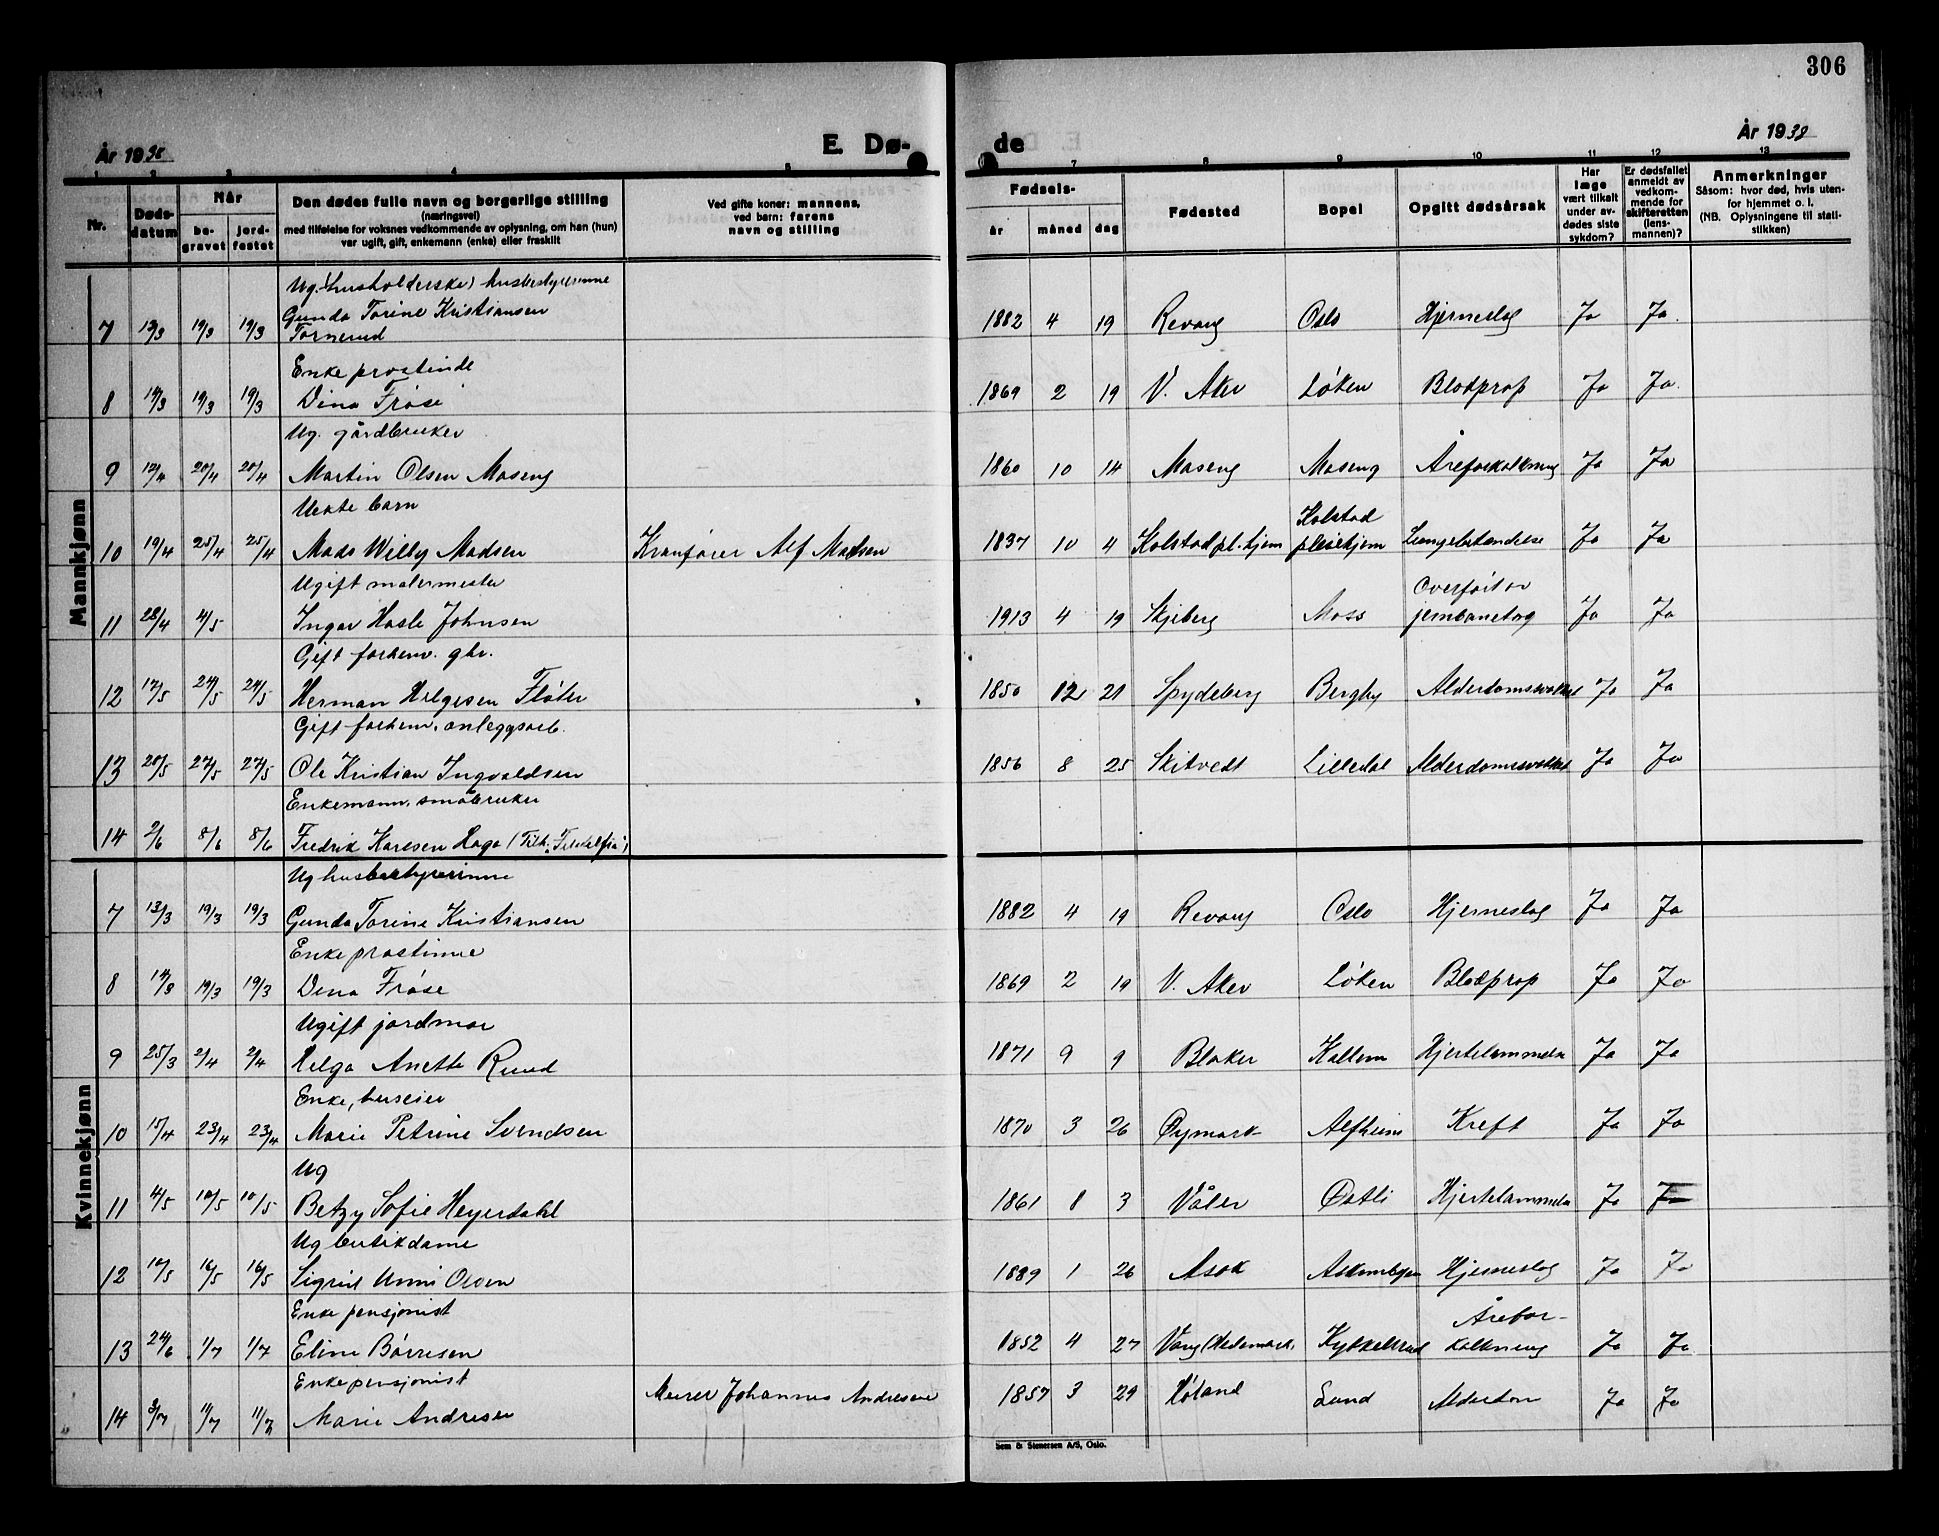 306
År 1938
E. Dø-
de
År 1938
1 2 3 4 5 7 8 9 10 11 12 13
Nr.
Døds-
datum
Når
be-
gravet
jord-
festet
Den dødes fulle navn og borgerlige stilling
(næringsvei)
med tilføielse for voksnes vedkommende av oplysning, om han (hun)
var ugift, gift, enkemann (enke) eller fraskilt
Ved gifte koner: mannens,
ved barn: farens
navn og stilling
Fødsels-
år måned dag
Fødested
Bopel
Opgitt dødsårsak
Har
læge
vært tilkalt
under av-
dødes siste
sykdom?
Er dødsfallet
anmeldt av
vedkom-
mende for
skifteretten
(lens-
mannen)?
Anmerkninger
Såsom: hvor død, hvis uten-
for hjemmet o. l.
(NB. Oplysningene til stati-
stikken)
Mannkjønn
Ug. (husholderske) husbestyrerinne
Gunda Torine Kristiansen
7 13/3 19/3 19/3 Tornerud 1882 4 19 Revaug Oslo Hjerneslag Ja Ja
Enke prostinde
8 14/3 19/3 19/3 Dina Frøse 1869 2 19 V. Aker Løken Blodprop Ja Ja
Ug. gårdbruker
9 12/4 20/4 20/4 Martin Olsen Maseng 1860 10 14 Maseng Maseng Åreforkalkning Ja Ja
barn
Kolstad
10 19/4 25/4 25/4 Mads Willy Madsen Kranfører Alf Madsen 1937 10 4 Kolstad pl.hjem pleiehjem Lungebetendelse Ja Ja
Ugift malermester
Overført av
11 28/4 4/5 Ingar Hasle Johnsen 1913 4 19 Skjeberg Moss jernbanetog Ja Ja
Gift forhenv. gbr.
12 17/5 24/5 24/5 Herman Helgesen Fløter 1850 12 21 Spydeberg Bergby Alderdomssvakhet Ja Ja
Gift forhenv. anleggsarb.
13 20/5 27/5 27/5 Ole Kristian Ingvaldsen 1856 8 25 Skiptvedt Lilledal Alderdomssvakhet Ja Ja
Enkemann, småbruker
14 2/6 8/6 8/6 Fredrik Karlsen Haga
Kvinnekjønn
Ug husbestyrerinne
7 13/3 19/3 19/3 Gunda Torine Kristiansen 1882 4 19 Revaug Oslo Hjerneslag Ja Ja
Enke prostinne
8 14/3 19/3 19/3 Dina Frøse 1869 2 19 V. Aker Løken Blodprop Ja Ja
Ugift jordmor
9 25/3 2/4 2/4 Helga Anette Ruud 1871 9 9 Blaker Kallum Hjertelammelse Ja Ja
Enke, huseier
10 15/4 23/4 23/4 Marie Petrine Svendsen 1870 3 26 Øymark Alfheim Kreft Ja Ja
Ug
11 4/5 10/5 10/5 Betzy Sofie Heyerdahl 1861 8 3 Våler Østli Hjertelammelse Ja Ja
Ug butikdame
12 10/5 16/5 16/5 Sigrid Unni Olsen 1889 1 26 Asak Askimbyen Hjerneslag Ja Ja
Enke pensjonist
Årefor-
13 24/6 1/7 1/7 Eline Børresen 1852 4 27 Vang (Hedemark) Kykkelsrud kalkning Ja Ja
Enke pensjonist
14 3/7 11/7 11/7 Marie Andresen Murer Johannes Andresen 1857 3 29 Høland Lund Alderdom Ja Ja
Sem & Stenersen A/S, Oslo.